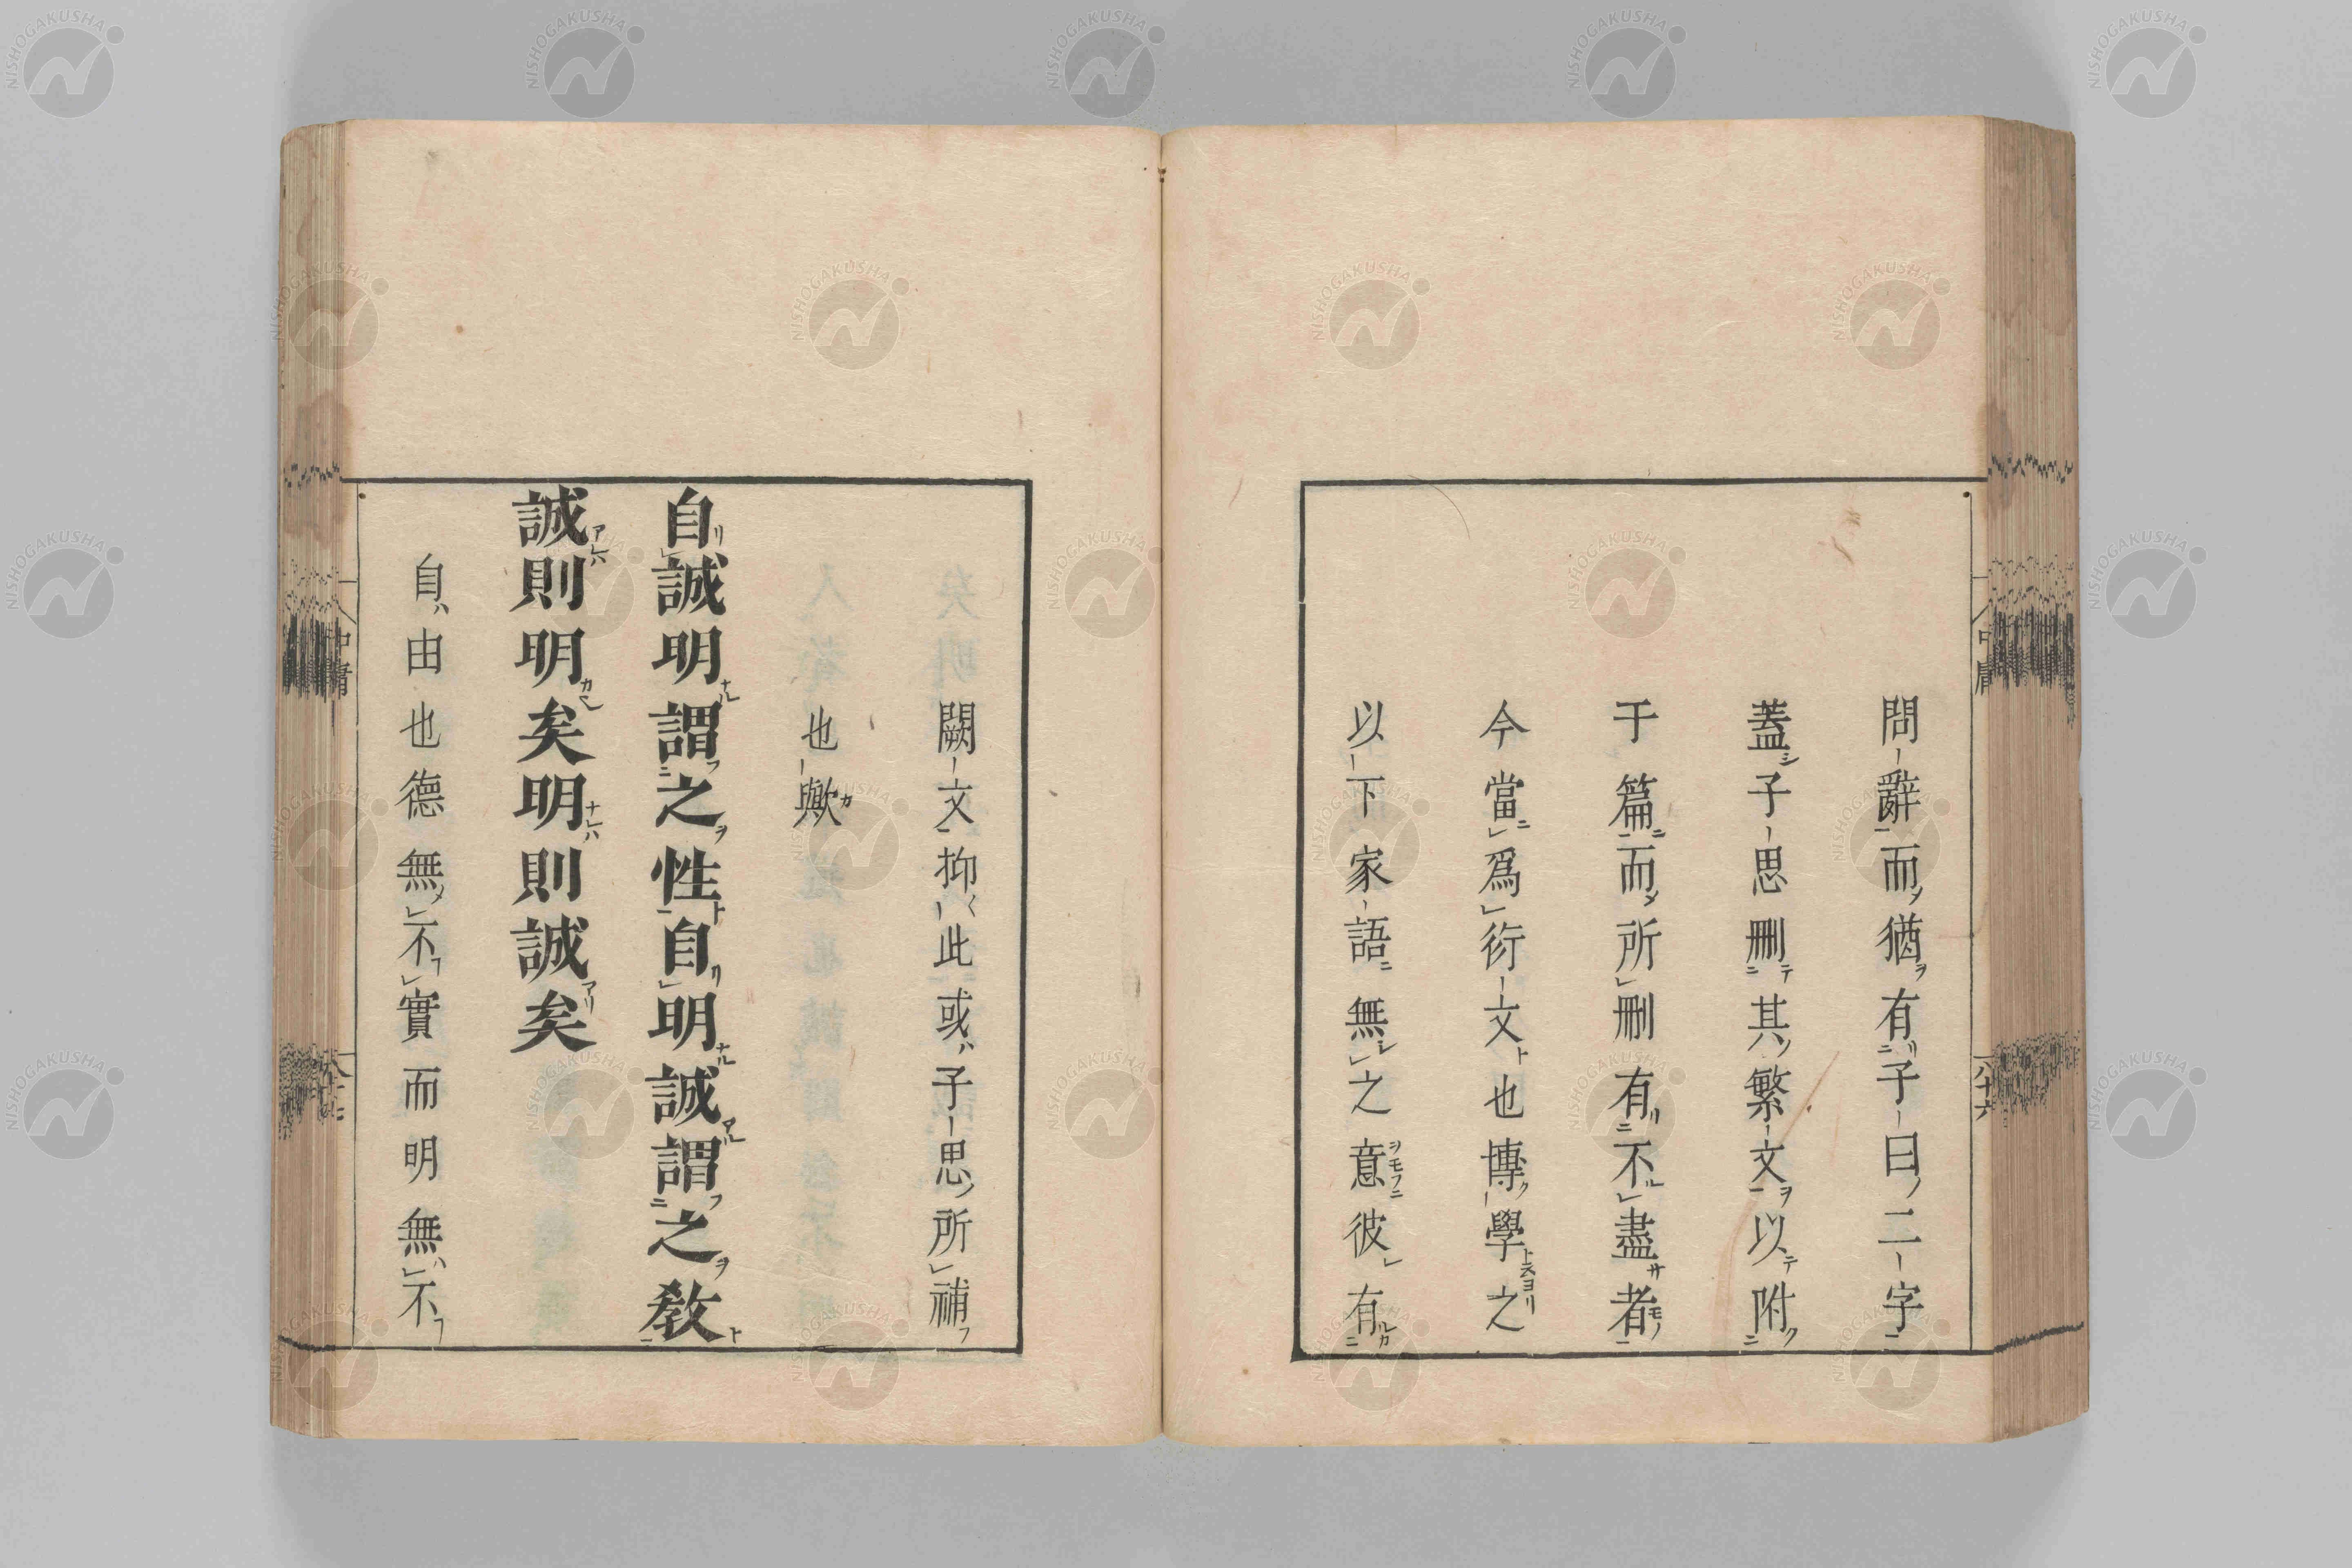 問辭而猶有子曰二字
蓋子思刪其繁文以附
于篇而所刪有不盡者
今當爲衍文也博學之
以下家語無之意彼有
闕文抑此或子思所補
也歟
自誠明謂之性自明誠謂之教
誠則明矣明則誠矣
自由也德無不實而明無不
中庸
六十六
中庸
NISHOGAKUSHA